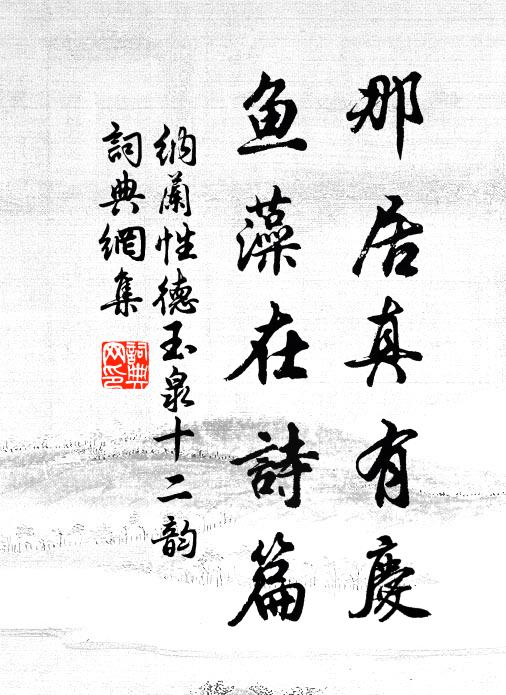 那居真有慶
鱼藻在詩篇
纳蘭性德玉泉十二韵
詞典網集
詞典網印